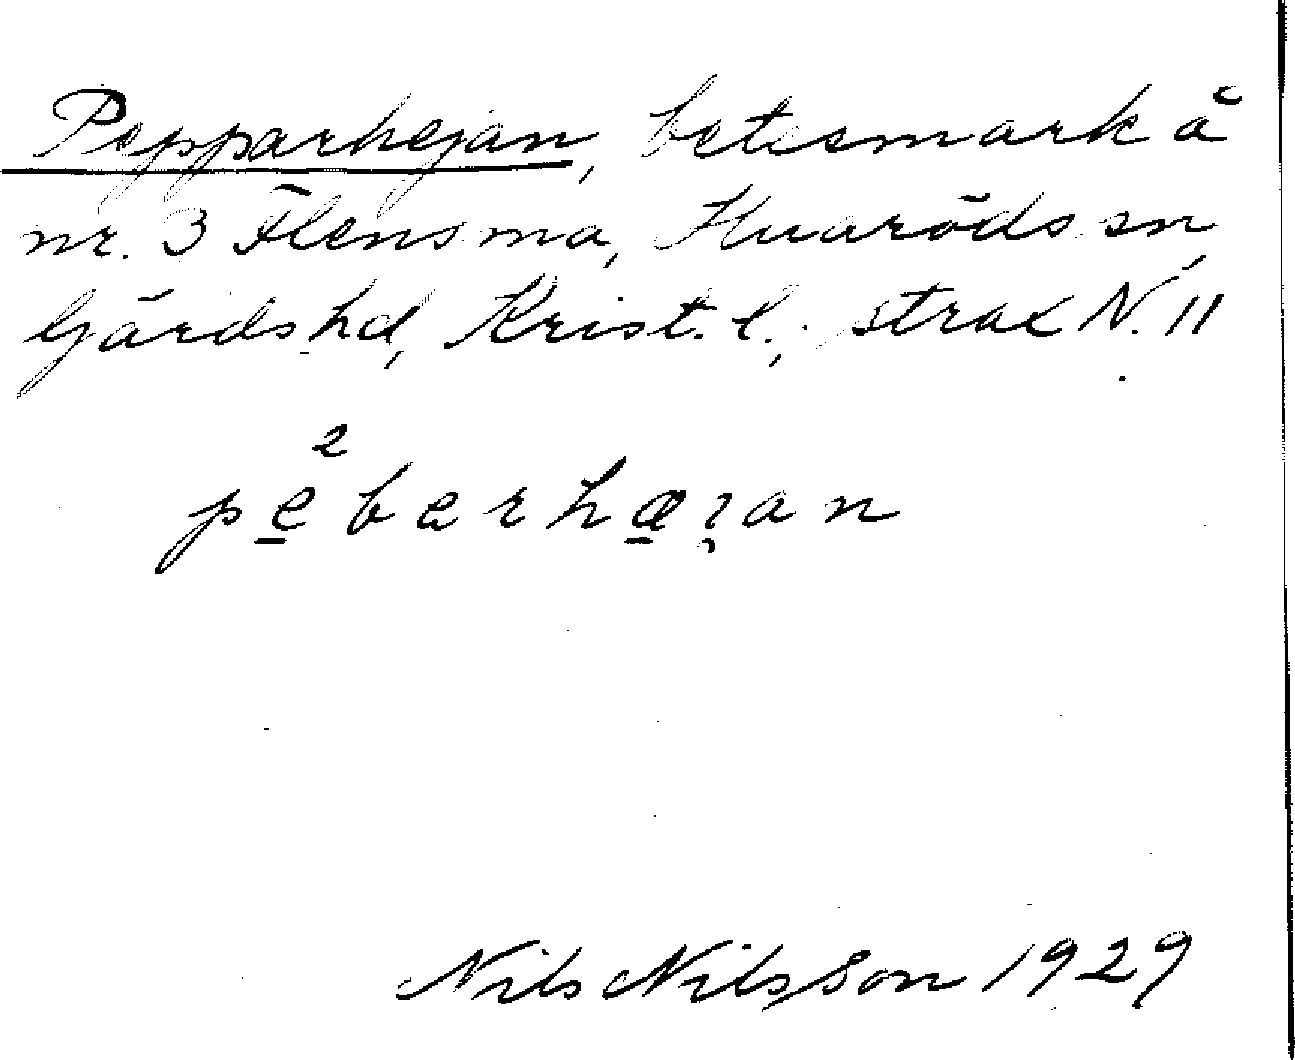 Pepparhejan, betesmark å
nr. 3 Flensma, Huaröds sn,
Gärds hd, Krist. l., strax N. 11
pe²barhæjan
Nils Nilsson 1929